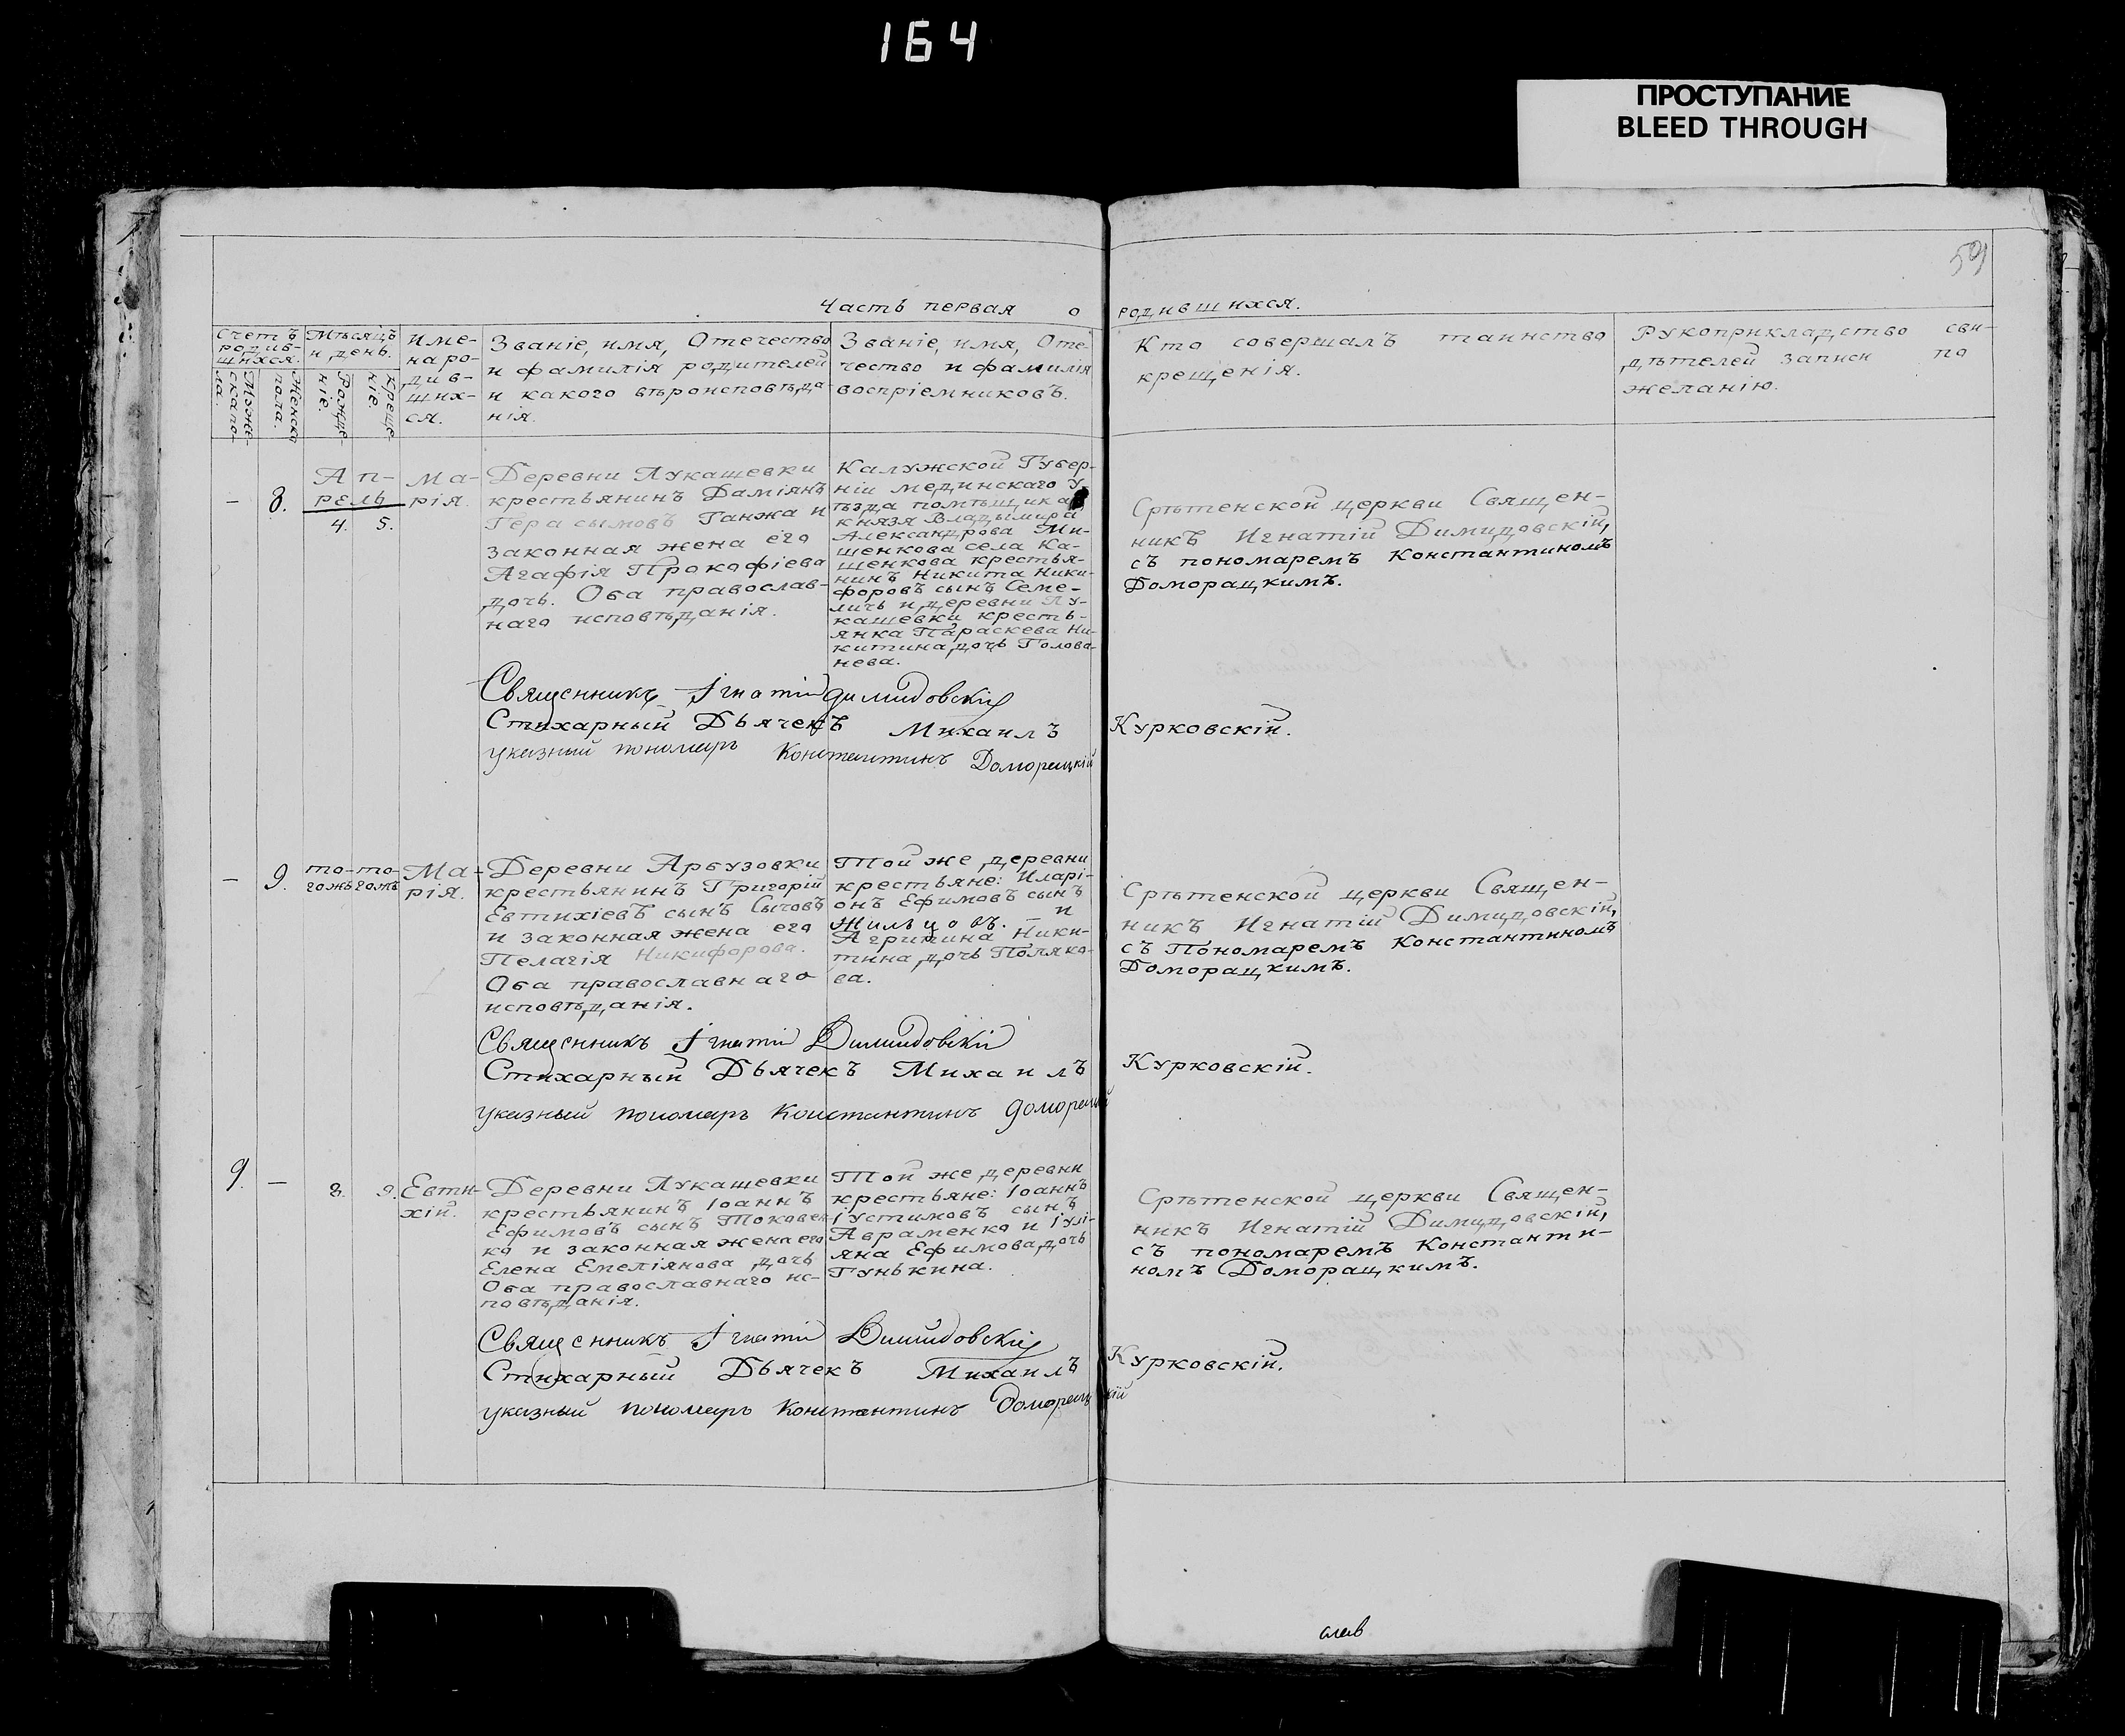 164
ПРОСТУПАНИЕ
BLEED THROUGH
59
Часть первая о родившихся.
Счетъ родив-шихся.
Мужескаго пола.
Женска пола.
Мѣсяцъ и день.
Рожде-ніе.
Креще-ніе.
Име-
на ро-
див-
ших-
ся.
Званіе, имя, Отечество
и фамилія родителей
и какого вѣроисповѣда-
нія.
Званіе, имя, Оте-
чество и фамилія
воспріемниковъ.
Кто совершалъ таинство
крещенія.
Рукоприкладство сви-
дѣтелей записи по
желанію.
– 8.
Ап-
рель
4. 5.
Ма-
рія.
Деревни Лукашевки
крестьянинъ Даміянъ
Герасимовъ Ганжа и
законная жена его
Агафія Прокофіева
дочь. Оба православ-
наго исповѣданія.
Калужской Губер-
ніи мединскаго у-
ѣзда помѣщика
князя Владымира
Александрова Ми-
щенкова села Ка-
щенкова крестья-
нинъ Никита Ники-
форовъ сынъ Семе-
личь и деревни Лу-
кашевки кресть-
янка Параскева Ни-
китина дочь Голова-
нева.
Срѣтенской церкви Священ-
никъ Игнатій Димидовскій,
съ пономаремъ Константиномъ
Доморацкимъ.
Священникъ Ігнатій Димидовскій
Стихарный Дьячекъ Михаилъ Курковскій.
указный пономарь Константинъ Доморацкій
– 9.
то- то-
гожъ гожъ
Ма-
рія.
Деревни Арбузовки
крестьянинъ Григорій
Евтихіевъ сынъ Сычовъ
и законная жена его
Пелагія Никифорова.
Оба православнаго
исповѣданія.
Той же деревни
крестьяне: Иларі-
онъ Ефимовъ сынъ
Жильцовъ. – и
Агрипина Ники-
тина дочь Поляко-
ва.
Срѣтенской церкви Священ-
никъ Игнатій Димидовскій,
съ Пономаремъ Константиномъ
Доморацкимъ.
Священникъ Ігнатій Димидовскій
Стихарный Дьячекъ Михаилъ Курковскій.
указный пономарь Константинъ Доморацкій
9. – 8. 9.
Евти-
хій.
Деревни Лукашевки
крестьянинъ Іоаннъ
Ефимовъ сынъ Токовен-
ко и законная жена его
Елена Емеліянова дочь
Оба православнаго ис-
повѣданія.
Той же деревни
крестьяне: Іоаннъ
Іустимовъ сынъ
Авраменко и Іулі-
яна Ефимова дочь
Гунькина.
Срѣтенской церкви Священ-
никъ Игнатій Димидовскій,
съ пономаремъ Константи-
номъ Доморацкимъ.
Священникъ Ігнатій Димидовскій
Стихарный Дьячекъ Михаилъ Курковскій.
указный пономарь Константинъ Доморацкій